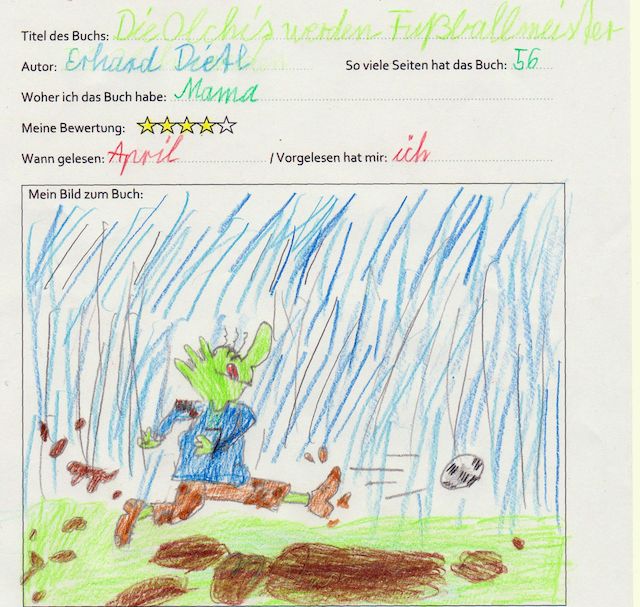 Titel des Buchs: Die Olchis werden Fußballmeister
Autor: Erhard Dietl So viele Seiten hat das Buch: 56
Woher ich das Buch habe: Mama
Meine Bewertung:
Wann gelesen: April / Vorgelesen hat mir: ich
Mein Bild zum Buch: